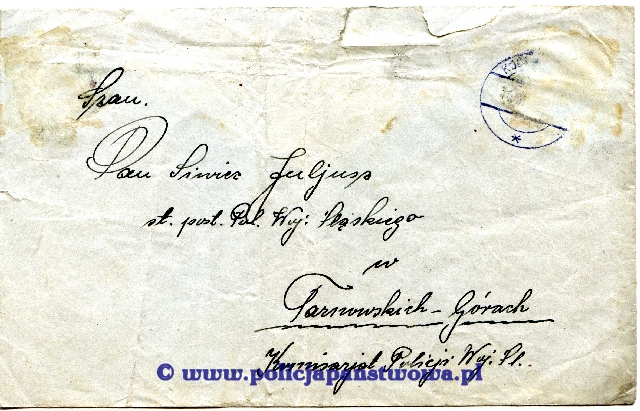 Szan.
Pan Siwiec Juljusz
st. post. Pol. Woj. Śląskiego
w
Tarnowskich-Górach
Komisarjat Policji Woj. Śl.
© www.policjapanstwowa.pl